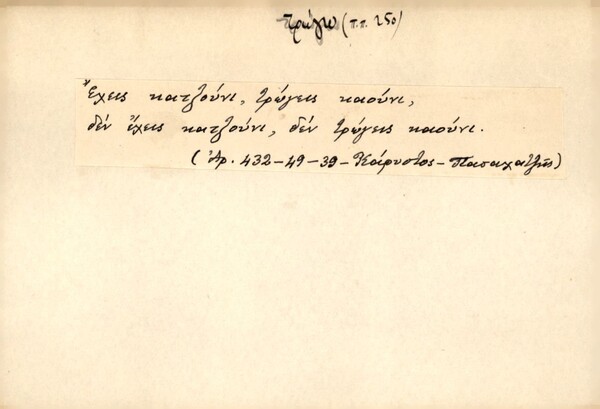 τρώγω (π.π. 250)
Ἔχεις κατζούνι, τρώγεις καούνι,
δέν ἔχεις κατζούνι, δέν τρώγεις καούνι.
(Ἀρ. 432-49-39- Κάρυστος - Παπαχατζῆς)